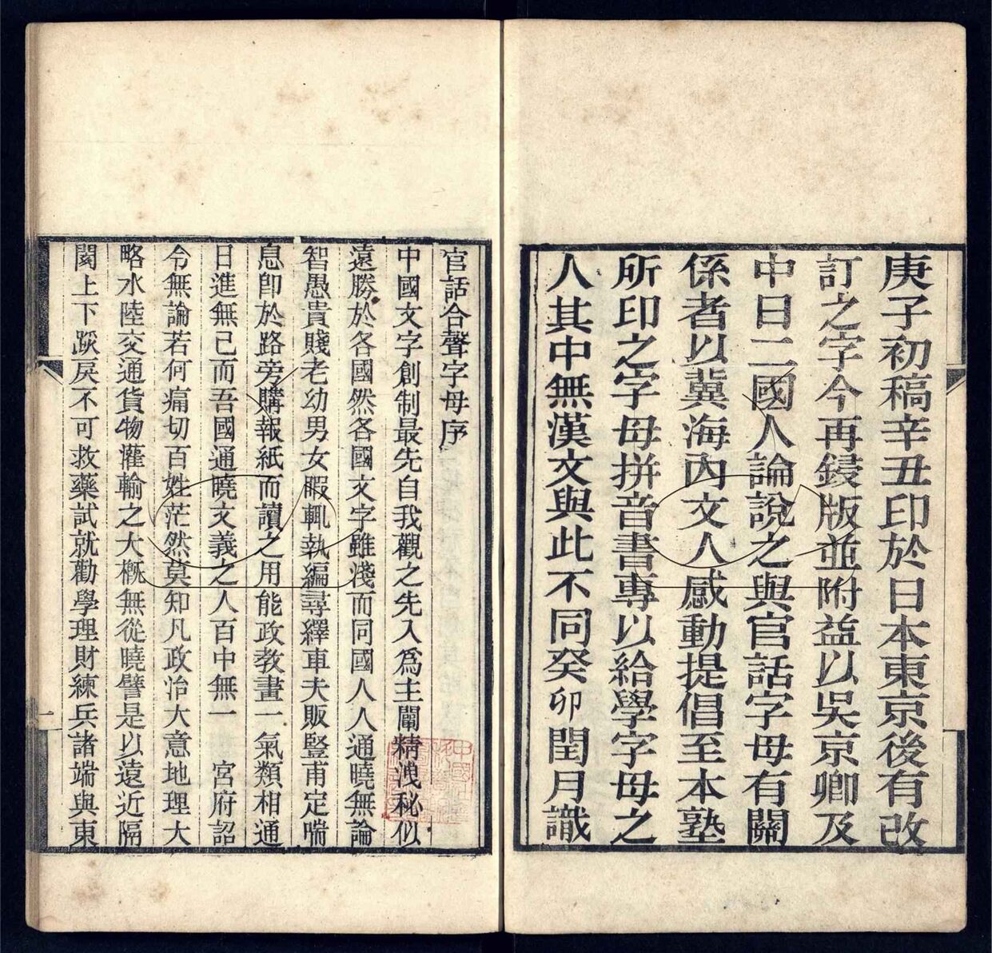 庚子初稿辛丑印於日本東京後有改
訂之字今再鋟版並附益以吳京卿及
中日二國人論說之與官話字母有關
係者以冀海內文人感動提倡至本塾
所印之字母拼音書專以給學字母之
人其中無漢文與此不同癸卯閏月識
官話合聲字母序
中國文字創制最先自我觀之先入爲主闡精洩秘似
遠勝於各國然各國文字雖淺而同國人人通曉無論
智愚貴賤老幼男女暇輒執編尋繹車夫販豎甫定喘
息卽於路旁購報紙而讀之用能政教畫一氣類相通
日進無已而吾國通曉文義之人百中無一 宮府詔
令無論若何痛切百姓茫然莫知凡政治大意地理大
略水陸交通貨物灌輸之大概無從曉譬是以遠近隔
閡上下𧿒戾不可救藥試就勸學理財練兵諸端與東